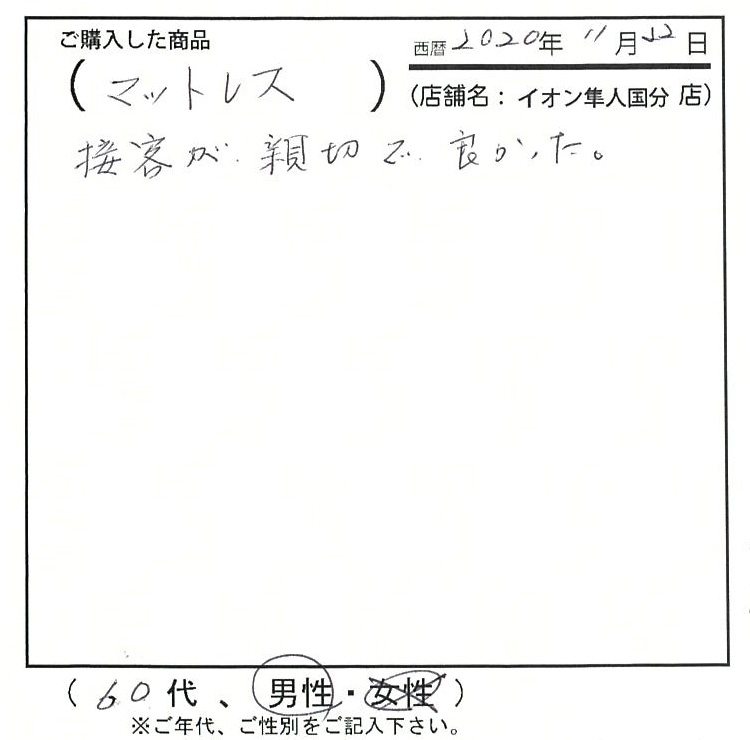 ご購入した商品
西暦2020年11月22日
(マットレス)
(店舗名:イオン隼人国分店)
接客が親切で良かった。
(60代、男性・女性)
※ご年代、ご性別をご記入下さい。